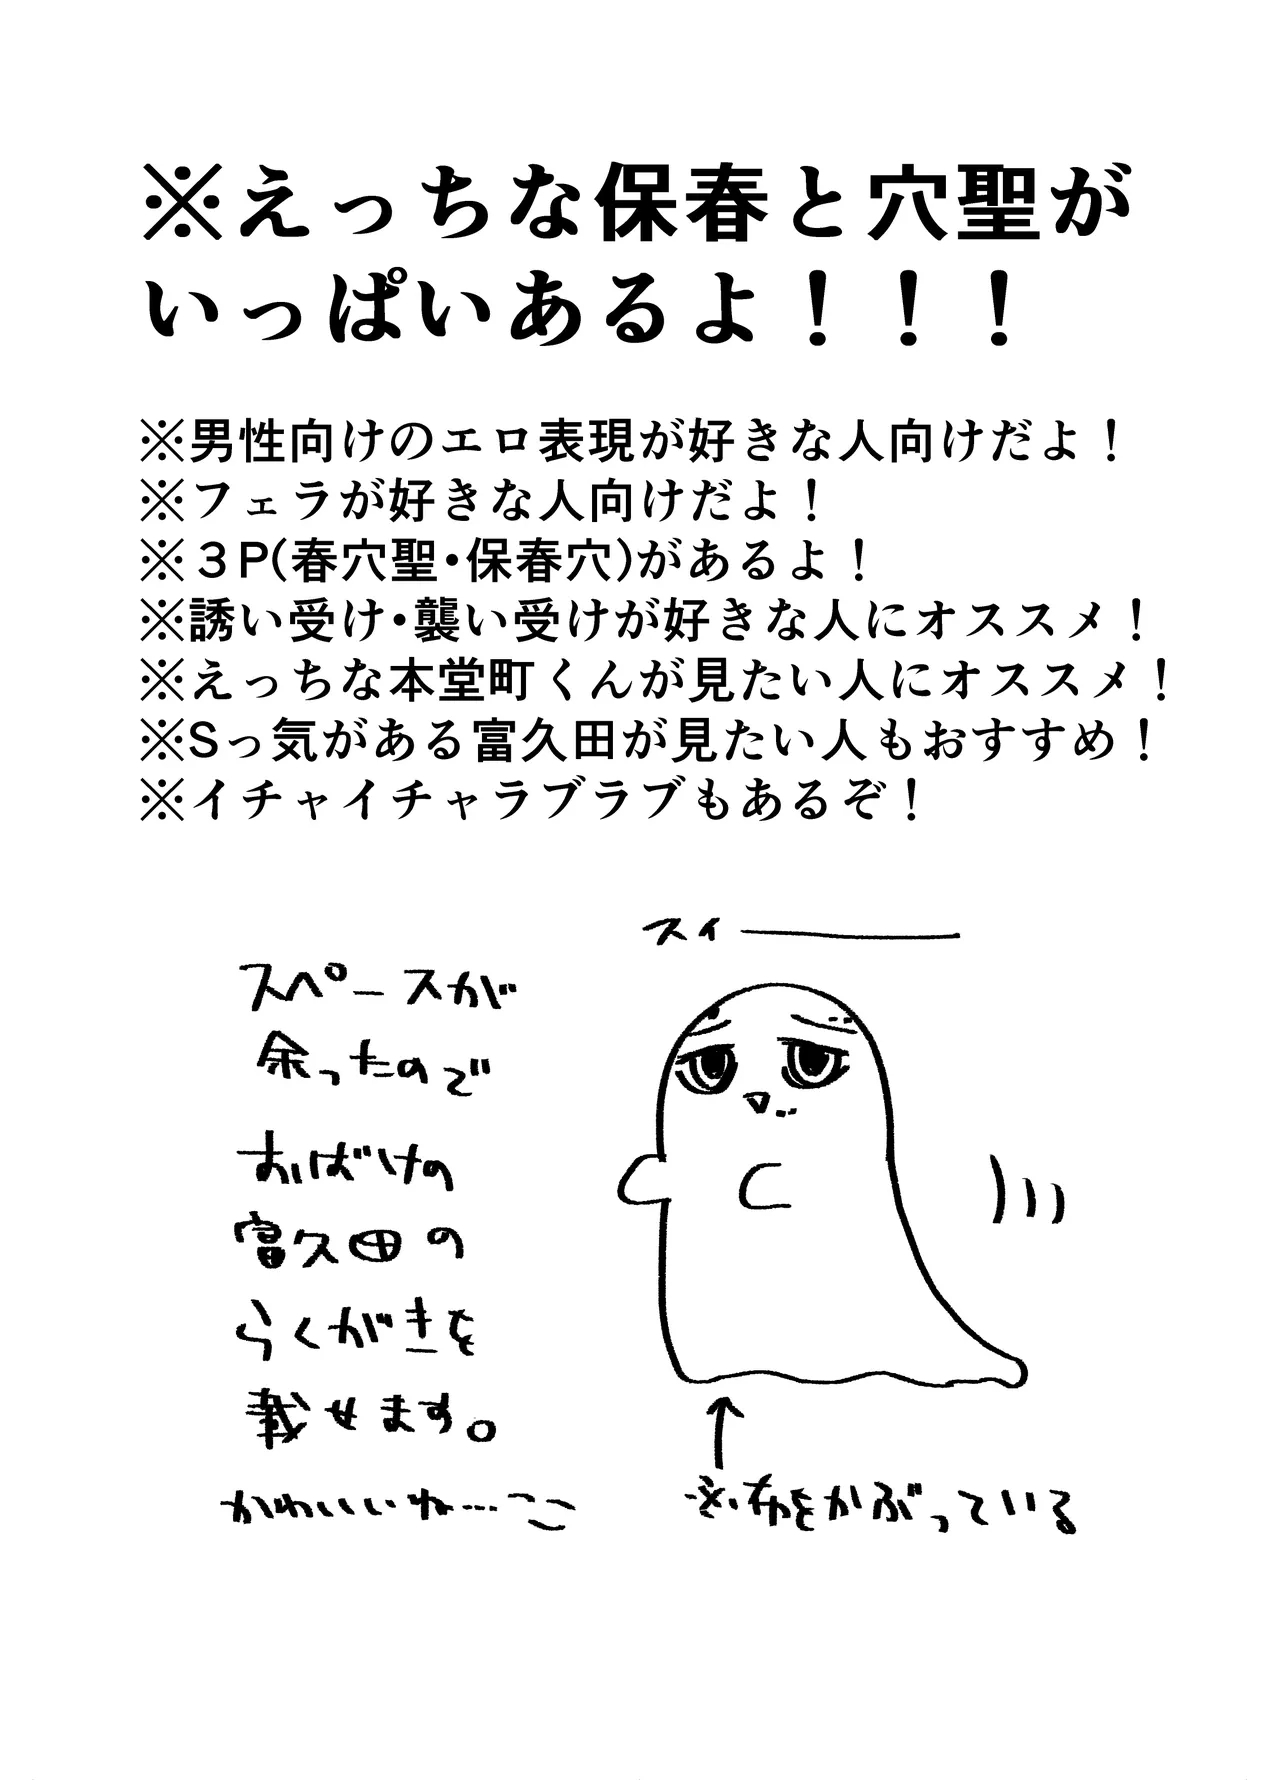 ※えっちな保春と穴聖が
いっぱいあるよ！！！
※男性向けのエロ表現が好きな人向けだよ！
※フェラが好きな人向けだよ！
※３P(春穴聖・保春穴)があるよ！
※誘い受け・襲い受けが好きな人にオススメ！
※えっちな本堂町くんが見たい人にオススメ！
※Sっ気がある富久田が見たい人もおすすめ！
※イチャイチャラブラブもあるぞ！
スペースが
余ったので
おばけの
富久田の
らくがきを
載せます。
かわいいね…
スイ―――
布をかぶっている